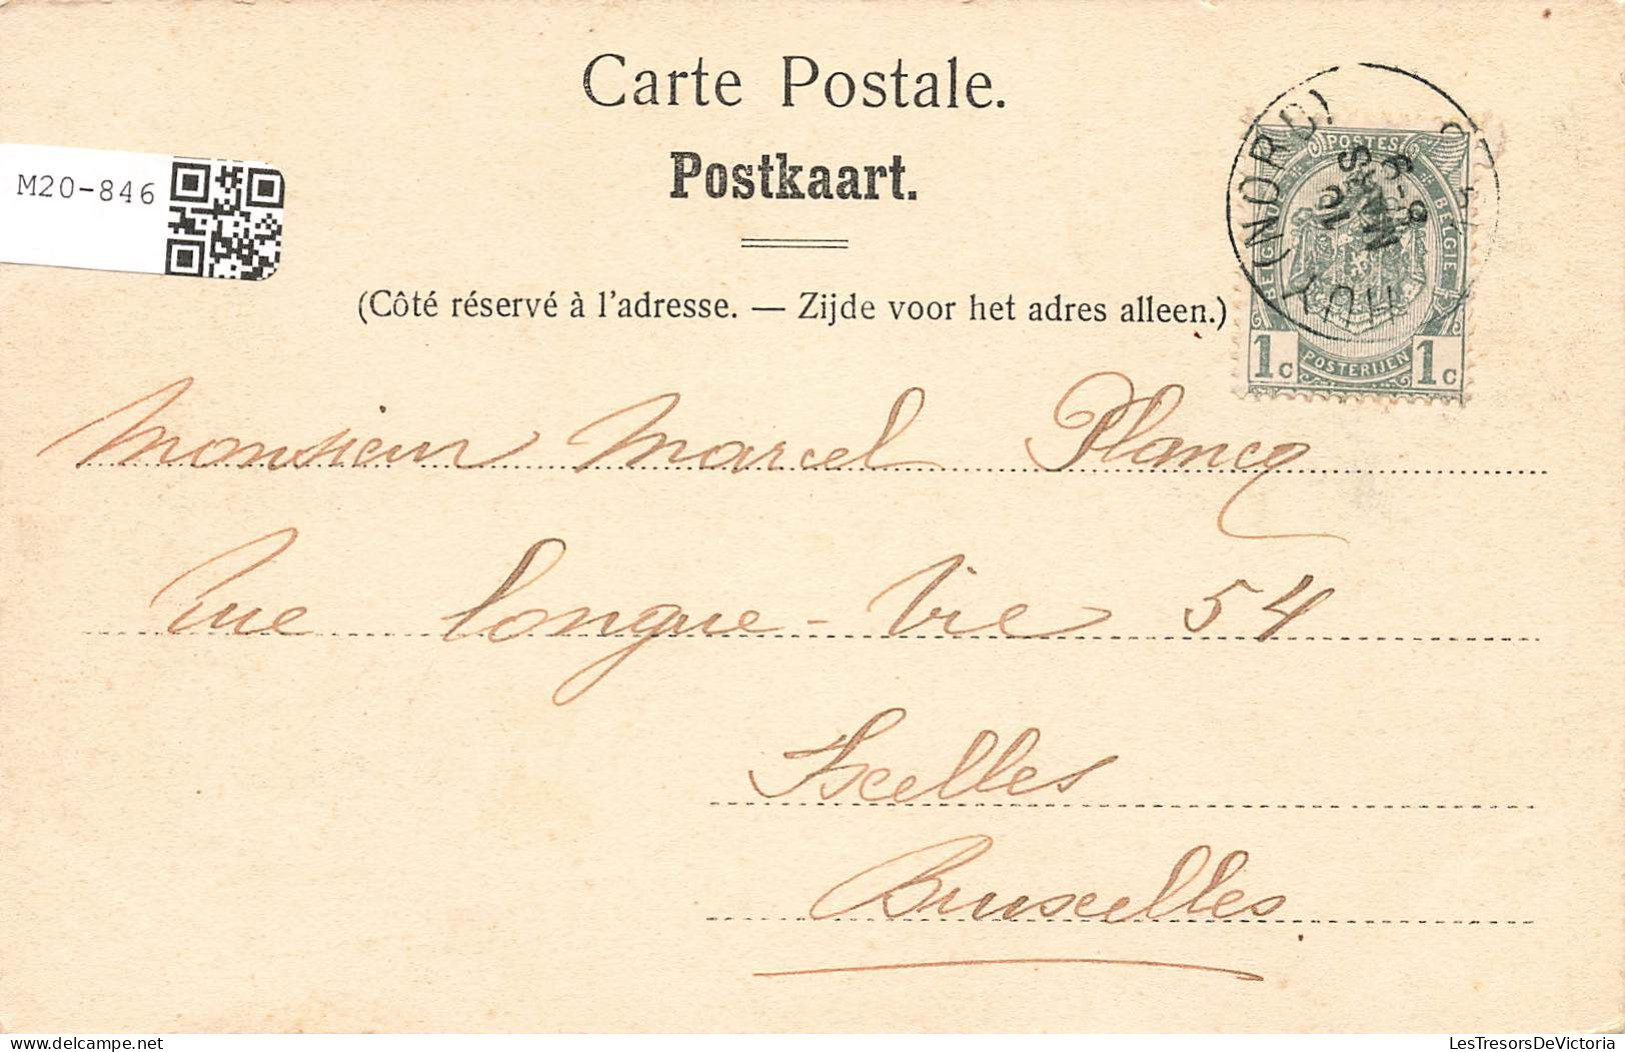 Carte Postale.
Postkaart.
M20-846
(Côté réservé à l'adresse. — Zijde voor het adres alleen.)
HUY (NORD)
MARS
POSTES
BELGIE
POSTERIJEN
1c 1c
Monsieur Marcel Plancq
Rue longue-Vie 54
Ixelles
Bruxelles
www.delcampe.net
LesTresorsDeVictoria